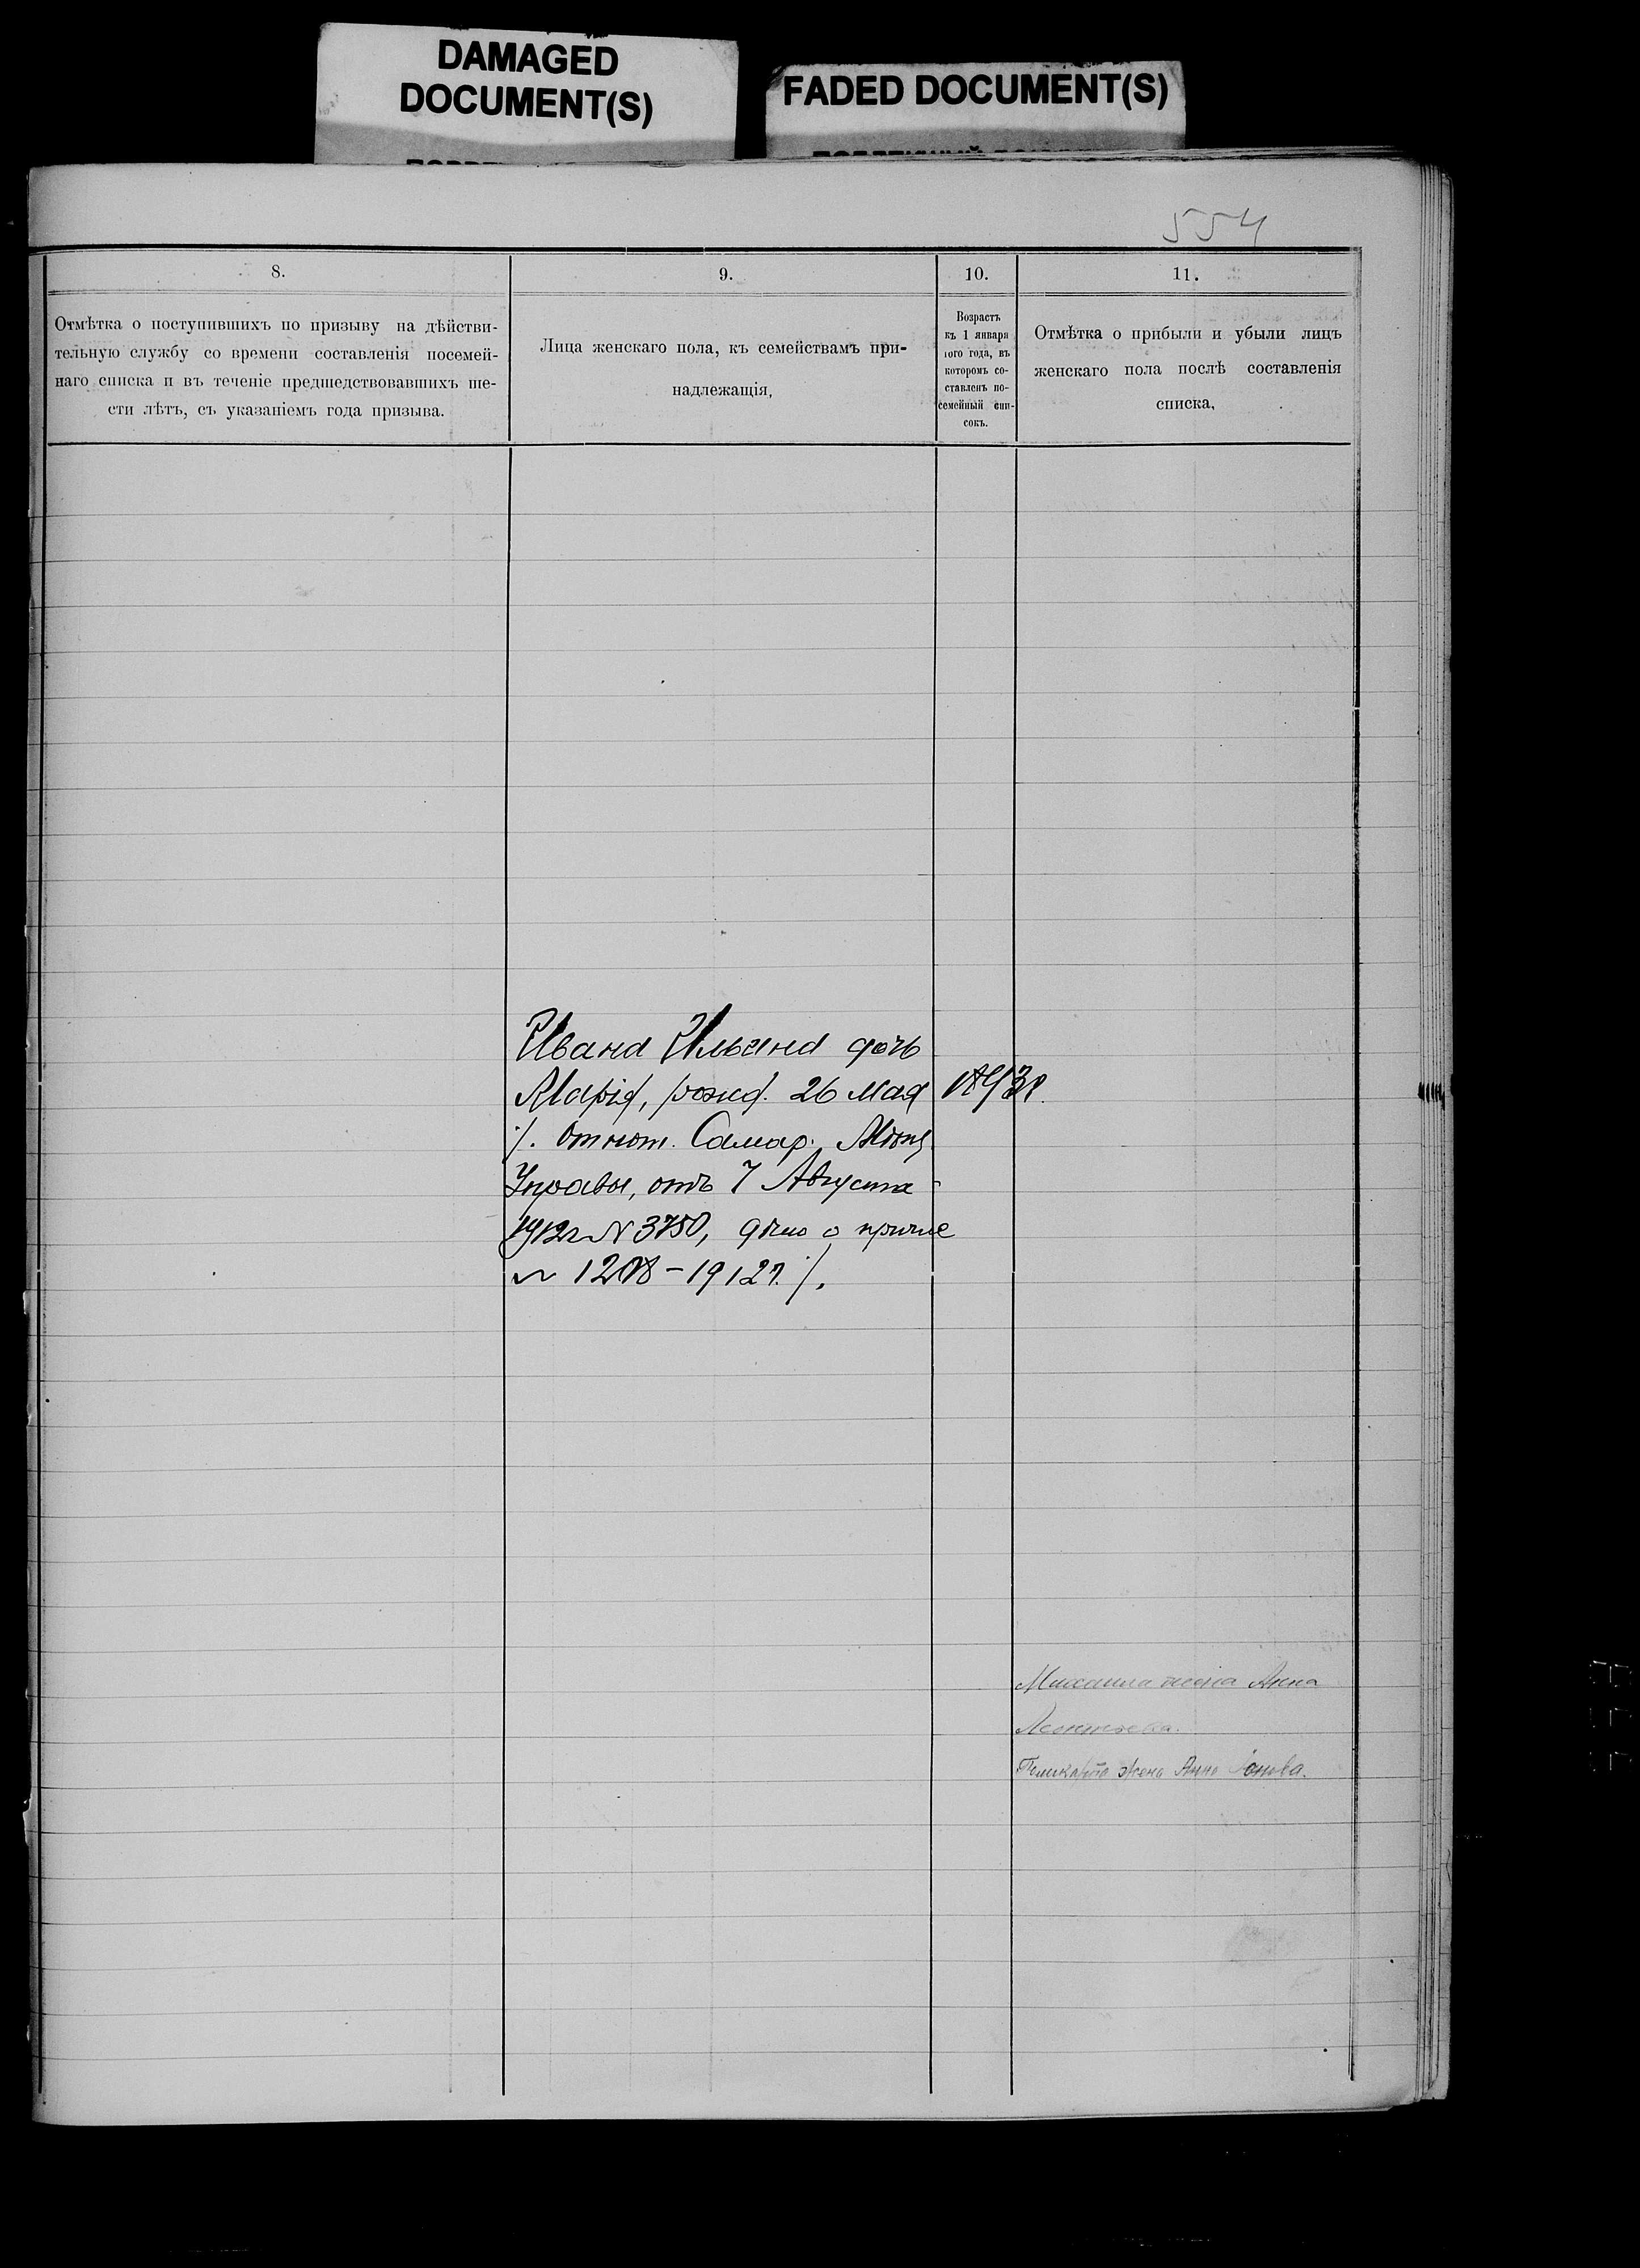 DAMAGED
DOCUMENT(S)
FADED DOCUMENT(S)
554
8.
Отмѣтка о поступившихъ по призыву на дѣйстви-
тельную службу со времени составленія посемей-
наго списка и въ теченіе предшедствовавшихъ ше-
сти лѣтъ, съ указаніемъ года призыва.
9.
Лица женскаго пола, къ семействамъ при-
надлежащія,
10.
Возрастъ
къ 1 января
того года, въ
которомъ со-
ставленъ по-
семейный спи-
сокъ.
11.
Отмѣтка о прибыли и убыли лицъ
женскаго пола послѣ составленія
списка,
Ивана Ильина дочь
Марія, рожд. 26 мая 1893г.
·/. Отнош. Самар. Мѣщ.
Управы, отъ 7 Августа
1912г N 3750, дѣло о
N 1208-1912г. ·/.
Михаила жена Анна
Леонтьева.
жена Анна